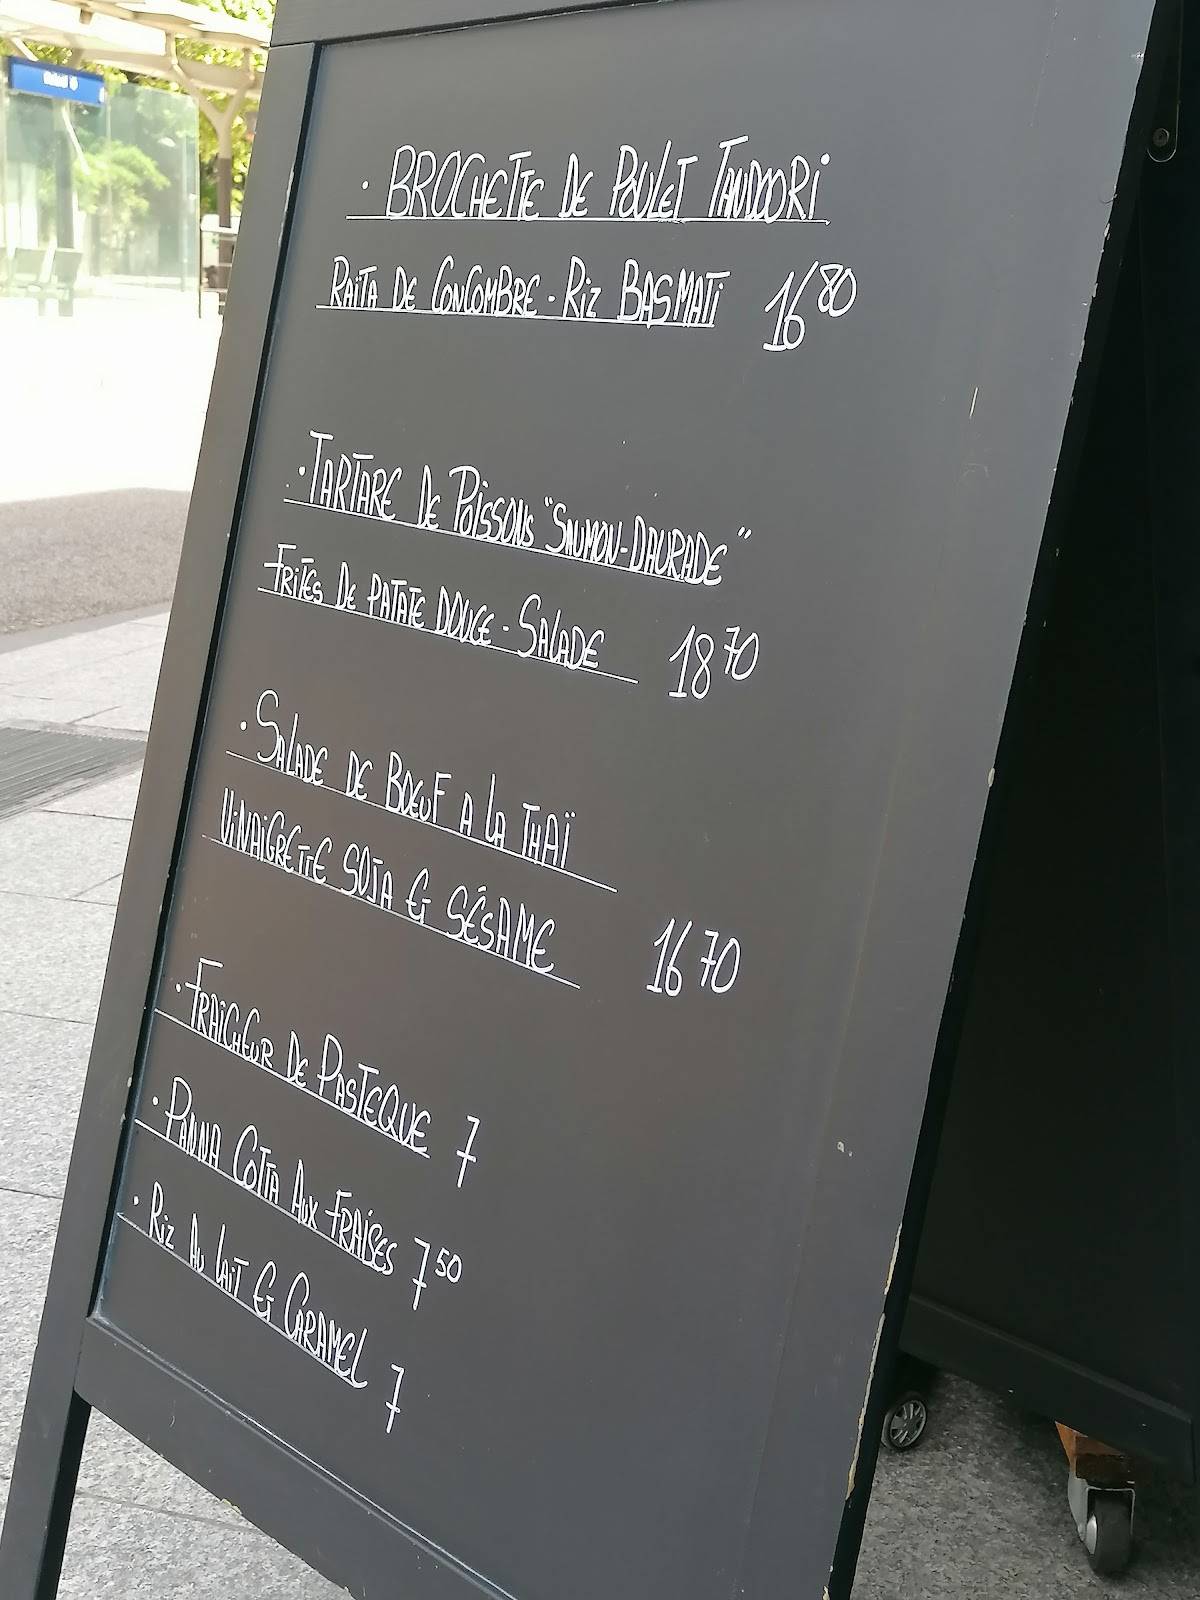 · BROCHETTE DE POULET TANDOORI
RAÏTA DE CONCOMBRE - RIZ BASMATI 16 80
· TARTARE DE POISSONS "SAUMON-DAURADE"
FRITES DE PATATE DOUCE - SALADE 18 70
· SALADE DE BOEUF A LA THAÏ
VINAIGRETTE SOJA & SÉSAME 16 70
· FRAÎCHEUR DE PASTEQUE 7
· PANNA COTTA AUX FRAISES 7 50
· RIZ AU LAIT & CARAMEL 7